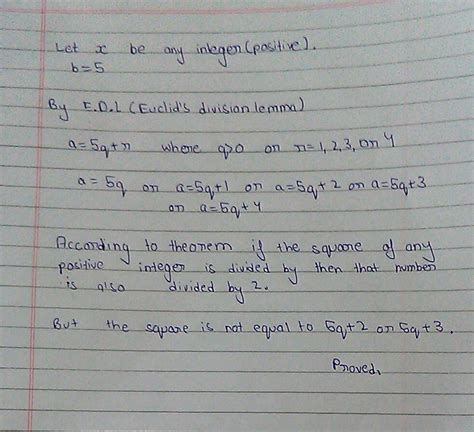 Let x be any integer (positive).
b=5
By E.D.L (Euclid's division lemma)
a=5q+r where q>0 or r=1,2,3, or 4
a=5q or a=5q+1 or a=5q+2 or a=5q+3
or a=5q+4
According to theorem if the square of any
positive integer is divided by then that number
is also divided by 2.
But the square is not equal to 5q+2 or 5q+3.
Proved.